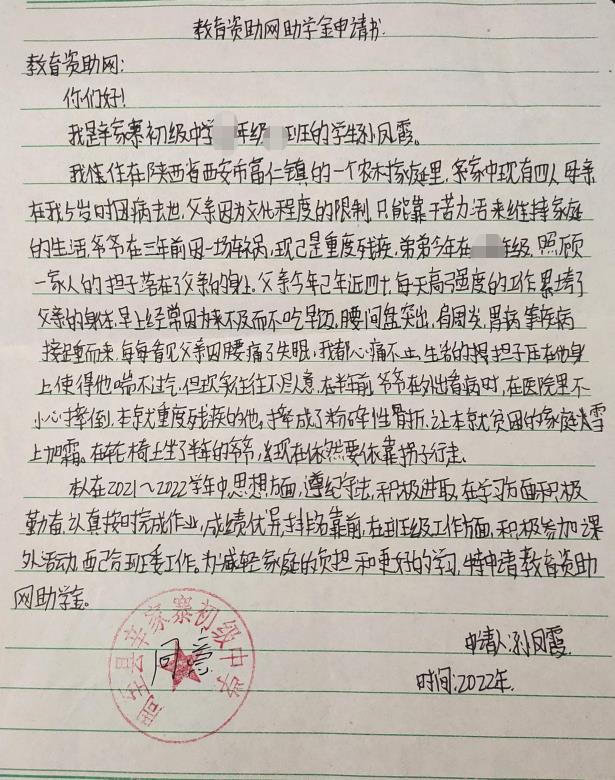 教育资助网助学金申请书
教育资助网:
你们好!
我是辛家寨初级中学 年级 班的学生孙凤霞。
我住在陕西省西安市富仁镇的一个农村家庭里,家中现有四人,母亲
在我5岁时因病去世,父亲因为文化程度的限制,只能靠干苦力活来维持家庭
的生活,爷爷在三年前因一场车祸,现已是重度残疾,弟弟今年在 年级,照顾
一家人的担子落在了父亲的身上。父亲今年已年近四十,每天高强度的工作累垮了
父亲的身体,早上经常因为来不及而不吃早饭,腰间盘突出,肩周炎,胃病等疾病
接踵而来,每每看见父亲因腰痛而失眠,我都心痛不止,生活的担子压在他身
上使得他喘不过气,但坎坷往往不尽人意,在半年前,爷爷在外出看病时,在医院里不
小心摔倒,本就重度残疾的他,摔成了粉碎性骨折,让本就贫困的家庭雪
上加霜。在轮椅上坐了半年的爷爷,到现在依然要依靠拐子行走。
本人在2021~2022学年中思想方面,遵纪守法,积极进取,在学习方面积极
勤奋,认真按时完成作业,成绩优异,排名靠前,在班级工作方面,积极参加课
外活动,配合班委工作,为减轻家庭的负担和更好的学习,特申请教育资助
网助学金。
申请人:孙凤霞
时间:2022年.
县辛家寨初级中学
同意